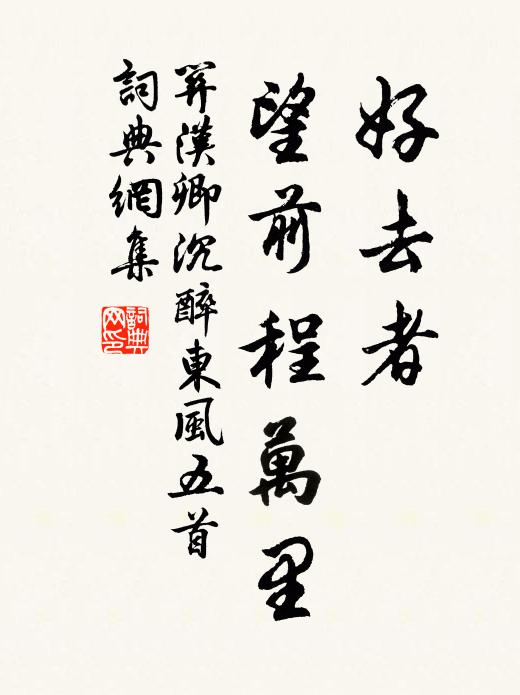 好去者
望前程萬里
關漢卿沉醉東風五首
詞典網集
詞典网印